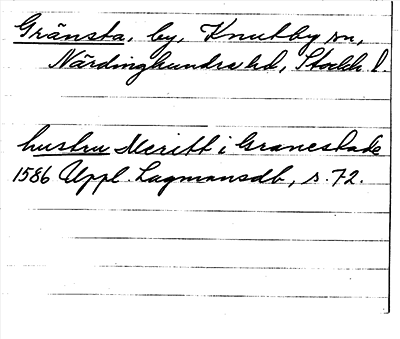 Gränsta, by, Knutby sn,
Närdinghundra hd, Stockh. l.
hustru Meritt i Granestade
1586 Uppl. Lagmansdb, s. 72.